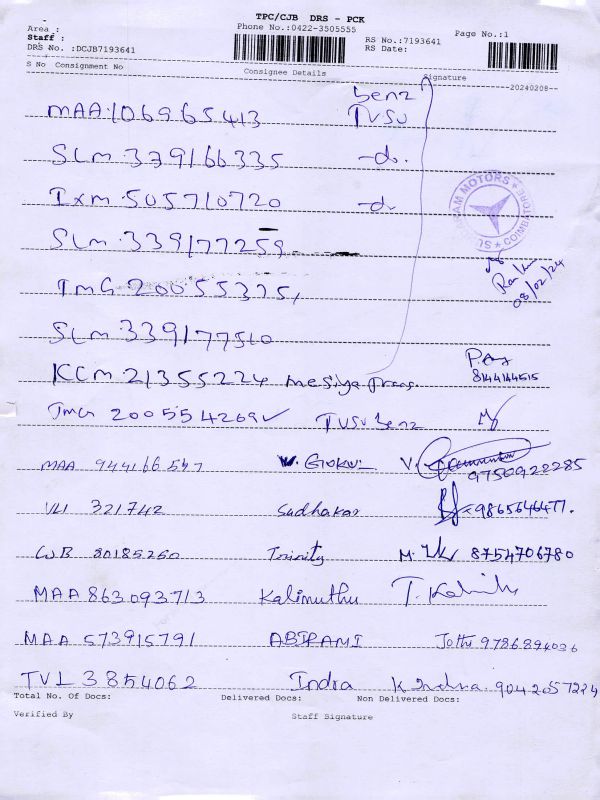 TPC/CJB DRS - PCK
Area :
Phone No.:0422-3505555
Page No.:1
Staff :
RS No.:7193641
DRS No. :DCJB7193641
RS Date:
S No Consignment No
Consignee Details
Signature
--20240208--
MAA.106965413 benz TVSU
SLM.379166335 -do.
IXM.505710720 -do
SLM.339177259
TMG 200555375,
SLM.339177510
KCM 21355224 mesiya Press.
8144144515
TMG 2005542692 TVSU benz
MAA 944166547 V. GOKUL V. 9750922285
VLI 321742 Sudhakar 9865646477.
CJB 80185260 Trinity M. 8754706780
MAA 863093713 Kalimuthu T. Kalimuthu
MAA 573915791 ABIRAMI Jothi 9786894036
TVL 3854062 Indra K Indra. 9042057224
SUNDARAM MOTORS * COIMBATORE *
08/02/24
Total No. Of Docs: Delivered Docs: Non Delivered Docs:
Verified By
Staff Signature